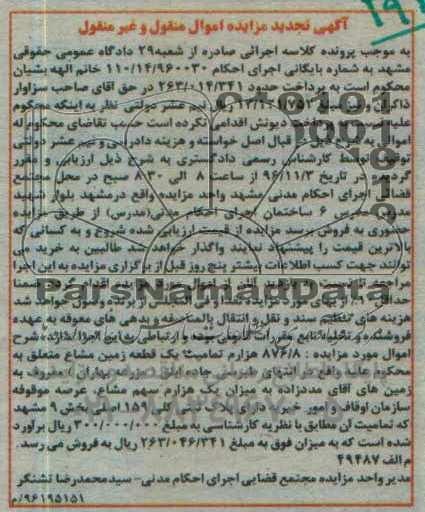 آگهی تجدید مزایده اموال منقول و غیر منقول
به موجب پرونده کلاسه اجرائی صادره از شعبه ۲۹ دادگاه عمومی حقوقی
مشهد به شماره بایگانی اجرای احکام ۱۱۰/۱۴/۹۶۰۰۳۰ خانم الهه بشیان
محکوم است به پرداخت حدود ۲۶۳/۰۱۴/۳۴۱ در حق آقای صاحب سزاوار
ذاکران و نیم عشر دولتی نظر به اینکه محکوم
علیه نسبت به پرداخت دیونش اقدامی نکرده است حسب تقاضای محکوم له
اموالی به شرح ذیل در قبال اصل خواسته و هزینه دادرسی و نیم عشر دولتی
توقیف توسط کارشناس رسمی دادگستری به شرح ذیل ارزیابی و مقرر
گردیده در تاریخ ۹۶/۱۱/۳ از ساعت ۸ الی ۸:۳۰ صبح در محل مجتمع
قضایی اجرای احکام مدنی مشهد واحد مزایده واقع در مشهد بلوار شهید
مدرس مدرس ۶ ساختمان اجرای احکام مدنی (مدرس) از طریق مزایده
حضوری به فروش برسد مزایده از قیمت ارزیابی شده شروع و به کسانی که
بالاترین قیمت را پیشنهاد نمایند واگذار خواهد شد طالبین به خرید می
توانند جهت کسب اطلاعات بیشتر پنج روز قبل از برگزاری مزایده به این اجرا
حداقل ۱۰٪ از بهای مورد مزایده خواهد شد
هزینه های تنظیم سند و نقل و انتقال بالمناصفه و بدهی های معوقه به عهده
فروشنده و تخلیه تابع مقررات قانونی بوده و ارتباطی به این اجرا ندارد شرح
اموال مورد مزایده : ۸۷۶/۸ هزارم تمامیت یک قطعه زمین مشاع متعلق به
محکوم علیه واقع در انتهای طبرسی جاده ابتدای مزرعه بهاران معروف به
زمین های آقای مددزاده به میزان یک هزارم سهم مشاع، عرصه موقوفه
سازمان اوقاف و امور خیریه دارای پلاک ثبتی کلی ۱۵۹ اصلی بخش ۹ مشهد
که تمامیت آن مطابق با نظریه کارشناسی به مبلغ ۳۰۰/۰۰۰/۰۰۰ ریال برآورد
شده است که به میزان فوق به مبلغ ۲۶۳/۰۴۶/۳۴۱ ریال به فروش می رسد.
م الف ۴۹۴۸۷
مدیر واحد مزایده مجتمع قضایی اجرای احکام مدنی- سیدمحمدرضا تشتگر
۹۶۱۹۵۱۵۱/م
ParsNamadData